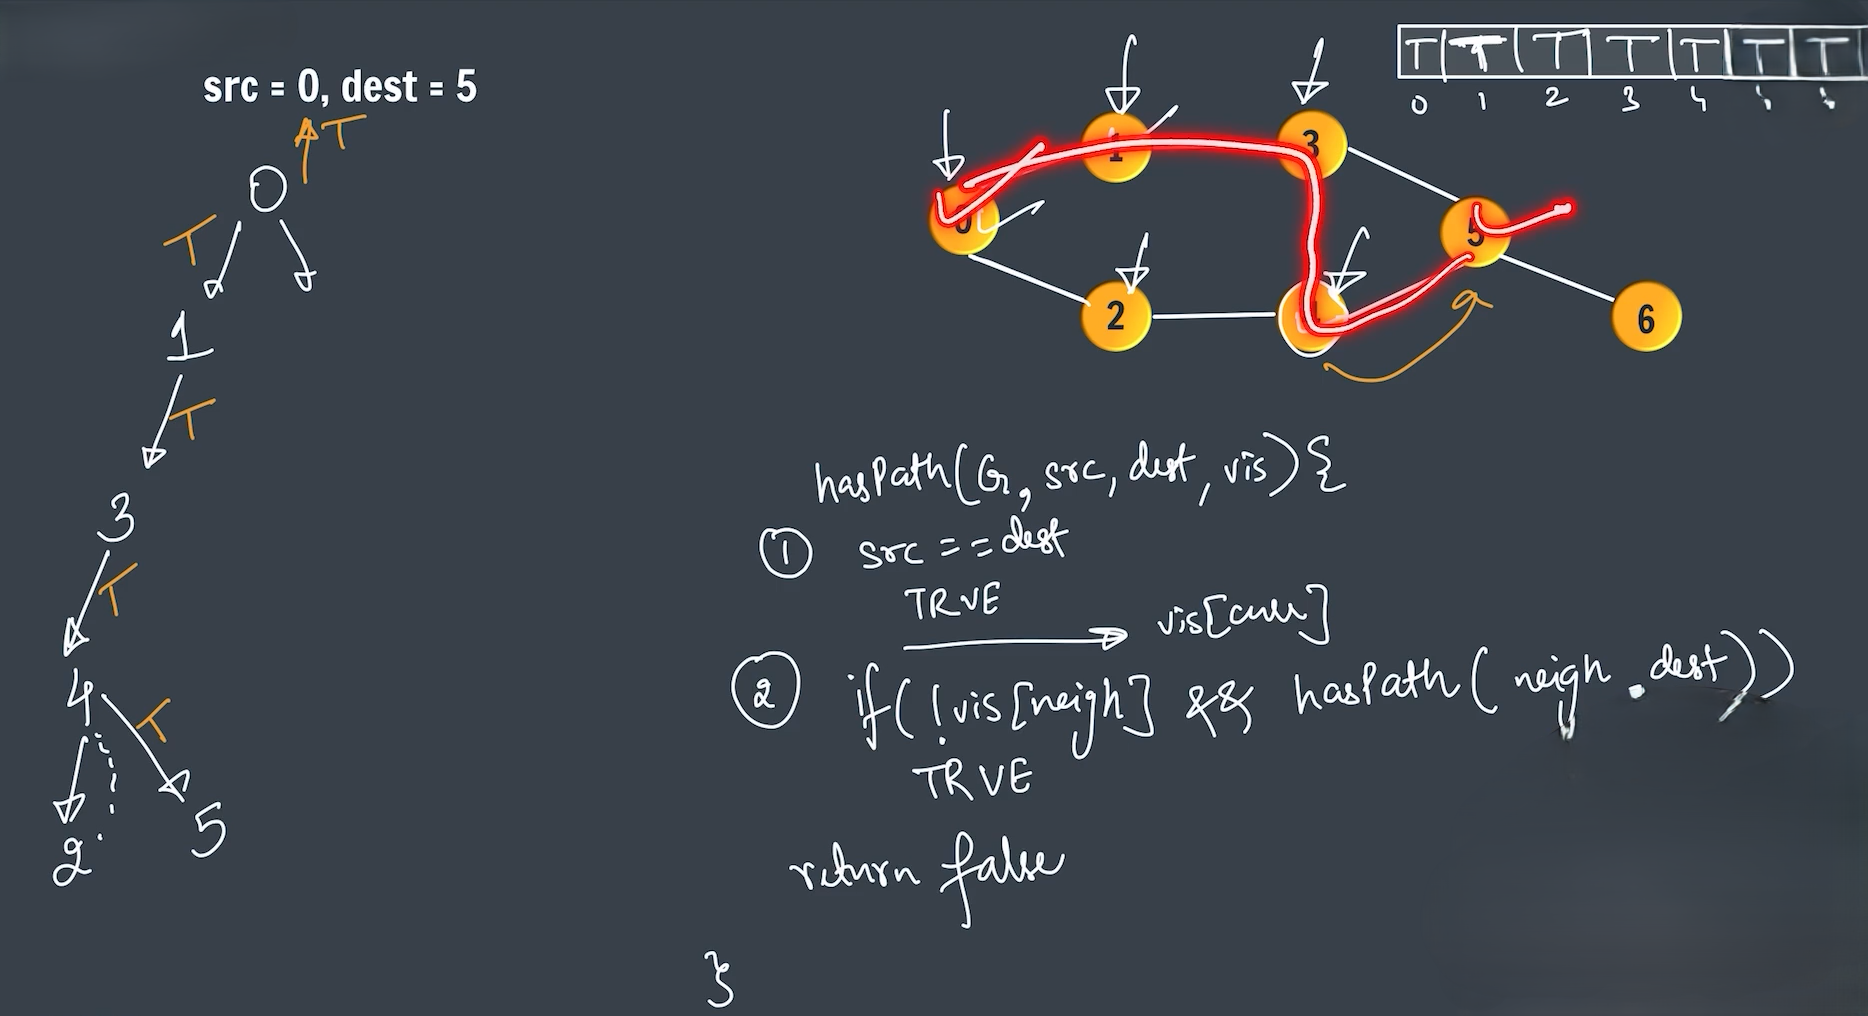 src = 0, dest = 5
T
0
T
1
T
3
T
4
T
2
5
T T T T T T T
0 1 2 3 4
1
3
0
5
2
6
hasPath(G, src, dest, vis){
① src == dest
TRUE
vis[curr]
② if(!vis[neigh] && hasPath(neigh, dest))
TRUE
return false
}